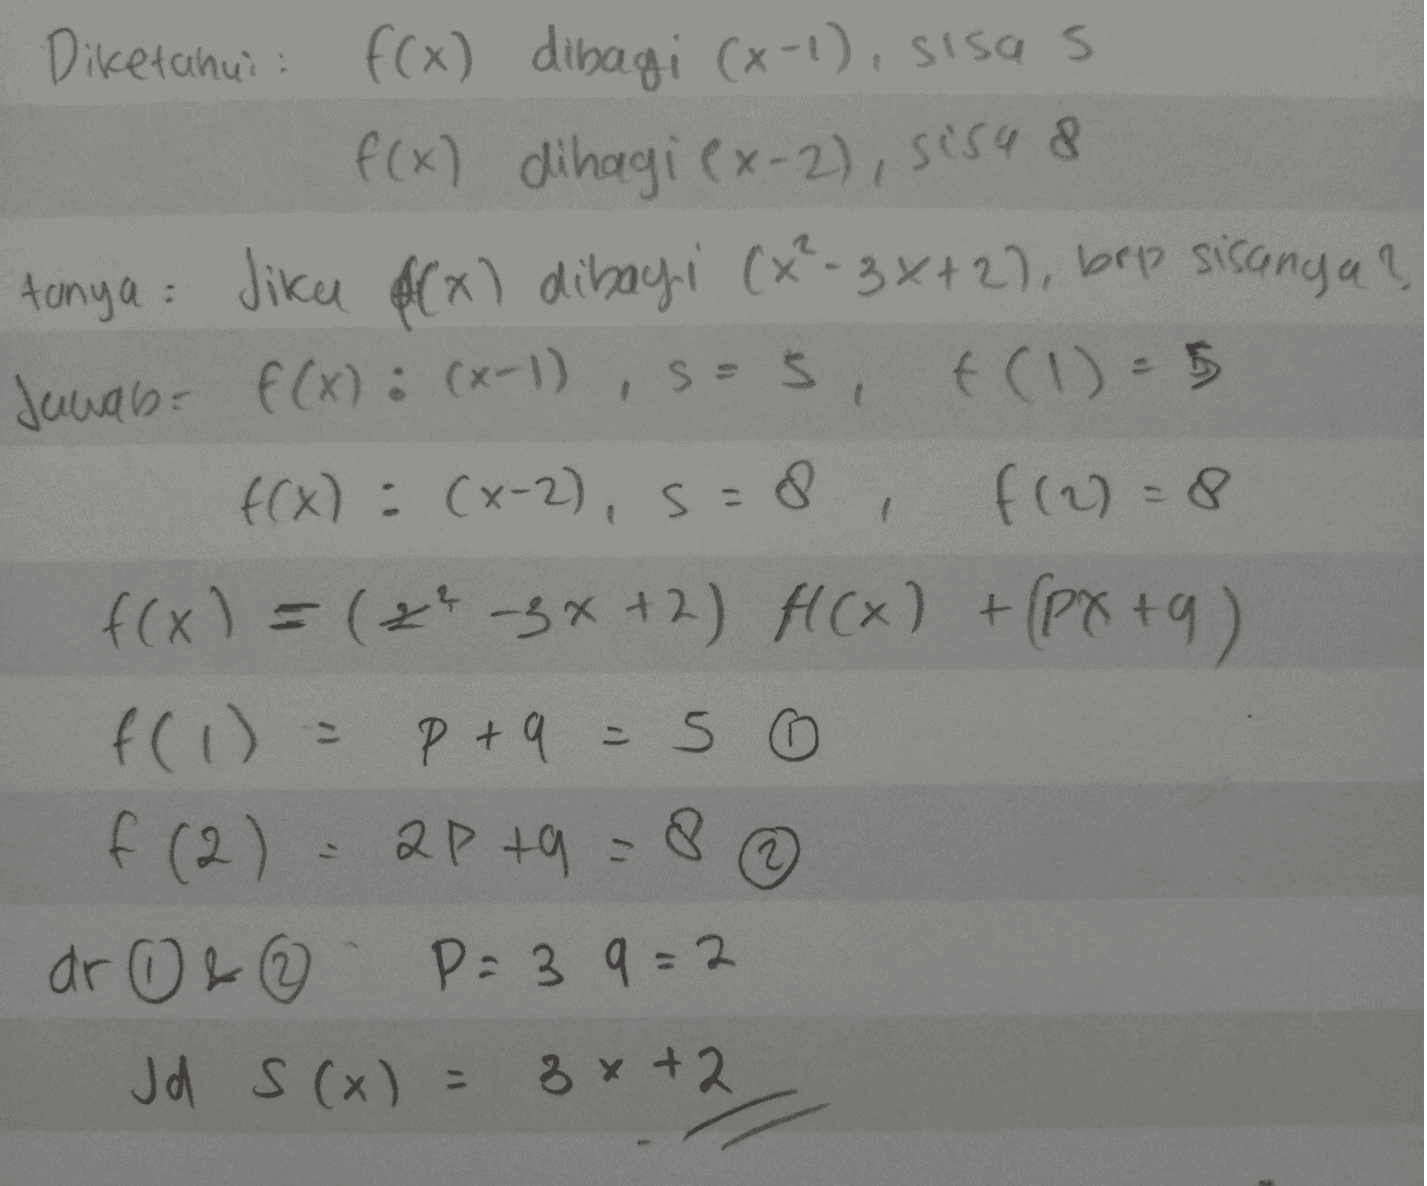 Diketahui: f(x) dibagi (x-1), sisa 5
f(x) dibagi (x-2), sisa 8
tanya: Jika f(x) dibagi (x²-3x+2), brp sisanya?
Jawab: f(x) : (x-1), s = 5, f(1) = 5
f(x) : (x-2), s = 8, f(2) = 8
f(x) = (x²-3x+2) H(x) + (px+q)
f(1) = p+q = 5 ①
f(2) = 2p+q = 8 ②
dr ① & ② p=3 q=2
Jd s(x) = 3x+2